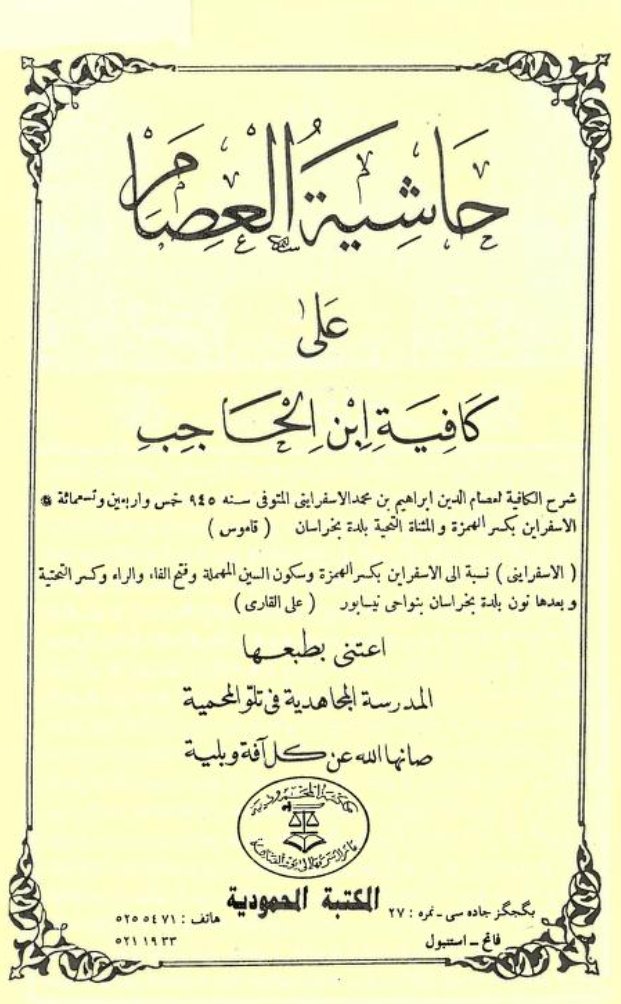 حَاشِيَةُ الْعِصَام
عَلىٰ
كَافِيَةِ اِبْنِ الْحَاجِبِ
شرح الكافية لعصام الدين ابراهيم بن محمد الاسفراينى المتوفى سنه ٩٤٥ خمس واربعين وتسعمائة
الاسفراين بكسر الهمزة والمثناة التحية بلدة بخراسان ( قاموس )
( الاسفراينى ) نسبة الى الاسفراين بكسر الهمزة وسكون السين المهملة وفتح الفاء والراء وكسر التحتية
وبعدها نون بلدة بخراسان بنواحى نيسابور ( على القارى )
اعتنى بطبعها
المدرسة المجاهدية فى تلّو المحمية
صانها الله عن كل آفة وبلية
مكتبة المحمودية
المكتبة المحمودية
هاتف : ٥٢٥ ٥٤ ٧١
٥٢١ ١٩ ٣٣
بگجگز جاده سى ـ نمره : ٢٧
فاتح ــ استنبول